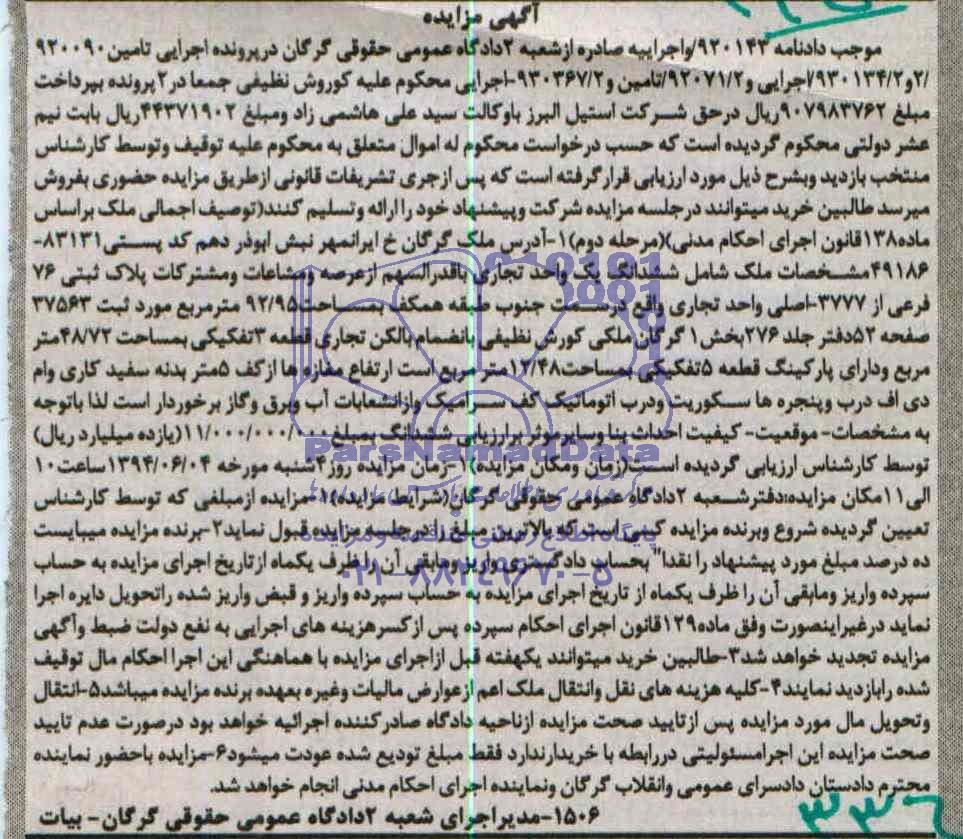 آگهی مزایده
موجب دادنامه ۹۲۰۱۴۳/واجراییه صادره ازشعبه ۲دادگاه عمومی حقوقی گرگان درپرونده اجرایی تامین ۹۲۰۰۹۰
/۲و۹۳۰۱۳۴/۲اجرایی و۹۲۰۷۱/۲تامین و۹۳۰۳۶۷/۲-اجرایی محکوم علیه کوروش نظیفی جمعا در۲پرونده بپرداخت
مبلغ ۹۰۷۹۸۳۷۶۲ریال درحق شرکت استیل البرز باوکالت سید علی هاشمی زاد ومبلغ ۴۴۳۷۱۹۰۲ریال بابت نیم
عشر دولتی محکوم گردیده است که حسب درخواست محکوم له اموال متعلق به محکوم علیه توقیف وتوسط کارشناس
منتخب بازدید وبشرح ذیل مورد ارزیابی قرارگرفته است که پس ازجری تشریفات قانونی ازطریق مزایده حضوری بفروش
میرسد طالبین خرید میتوانند درجلسه مزایده شرکت وپیشنهاد خود را ارائه وتسلیم کنند(توصیف اجمالی ملک براساس
ماده۱۳۸قانون اجرای احکام مدنی)(مرحله دوم)۱-آدرس ملک گرگان خ ایرانمهر نبش ابوذر دهم کد پستی۸۳۱۳۱-
۴۹۱۸۶مشخصات ملک شامل ششدانگ یک واحد تجاری باقدرالسهم ازعرصه ومشاعات ومشترکات پلاک ثبتی ۷۶
فرعی از ۳۷۷۷-اصلی واحد تجاری واقع درسمت جنوب طبقه همکف بمساحت۹۲/۹۵ مترمربع مورد ثبت ۳۷۵۶۳
صفحه ۵۲دفتر جلد ۲۷۶بخش۱ گرگان ملکی کورش نظیفی بانضمام بالکن تجاری قطعه ۳تفکیکی بمساحت ۴۸/۷۲متر
مربع ودارای پارکینگ قطعه ۵تفکیکی بمساحت۱۲/۴۸متر مربع است ارتفاع مغازه ها ازکف ۵متر بدنه سفید کاری وام
دی اف درب وپنجره ها سکوریت ودرب اتوماتیک کف سرامیک وازانشعابات آب وبرق وگاز برخوردار است لذا باتوجه
به مشخصات- موقعیت- کیفیت احداث بنا وسایر موثر برارزیابی ششدانگ بمبلغ۱۱/۰۰۰/۰۰۰/۰۰۰(یازده میلیارد ریال)
توسط کارشناس ارزیابی گردیده است(زمان ومکان مزایده)۱-زمان مزایده روز۴شنبه مورخه ۱۳۹۴/۰۶/۰۴ساعت۱۰
الی۱۱مکان مزایده:دفترشعبه ۲دادگاه عمومی حقوقی گرگان(شرایط مزایده)۱-مزایده ازمبلغی که توسط کارشناس
تعیین گردیده شروع وبرنده مزایده کسی است که بالاترین مبلغ را درجلسه مزایده قبول نماید۲-برنده مزایده میبایست
ده درصد مبلغ مورد پیشنهاد را نقدا" بحساب دادگستری واریز ومابقی آن را ظرف یکماه ازتاریخ اجرای مزایده به حساب
سپرده واریز ومابقی آن را ظرف یکماه از تاریخ اجرای مزایده به حساب سپرده واریز و قبض واریز شده راتحویل دایره اجرا
نماید درغیراینصورت وفق ماده۱۲۹قانون اجرای احکام سپرده پس ازکسرهزینه های اجرایی به نفع دولت ضبط وآگهی
مزایده تجدید خواهد شد۳-طالبین خرید میتوانند یکهفته قبل ازاجرای مزایده با هماهنگی این اجرا احکام مال توقیف
شده رابازدید نمایند۴-کلیه هزینه های نقل وانتقال ملک اعم ازعوارض مالیات وغیره بعهده برنده مزایده میباشد۵-انتقال
وتحویل مال مورد مزایده پس ازتایید صحت مزایده ازناحیه دادگاه صادرکننده اجرائیه خواهد بود درصورت عدم تایید
صحت مزایده این اجرامسئولیتی دررابطه با خریدارندارد فقط مبلغ تودیع شده عودت میشود۶-مزایده باحضور نماینده
محترم دادستان دادسرای عمومی وانقلاب گرگان ونماینده اجرای احکام مدنی انجام خواهد شد.
۱۵۰۶-مدیراجرای شعبه ۲دادگاه عمومی حقوقی گرگان- بیات
۳۳۶
ParsNamadData
پایگاه اطلاع رسانی مناقصه و مزایده
۰۲۱-۸۸۳۴۹۶۷۰-۵